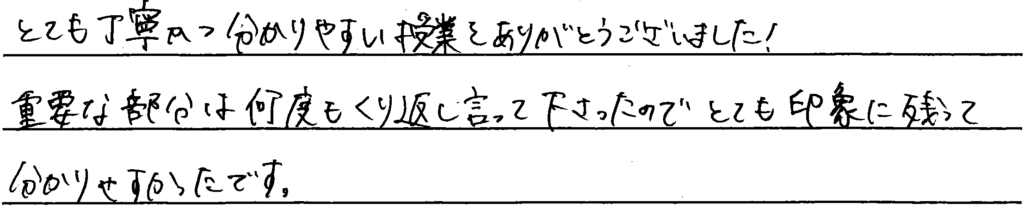 とても丁寧かつ分かりやすい授業をありがとうございました!
重要な部分は何度もくり返し言って下さったのでとても印象に残って
分かりやすかったです。